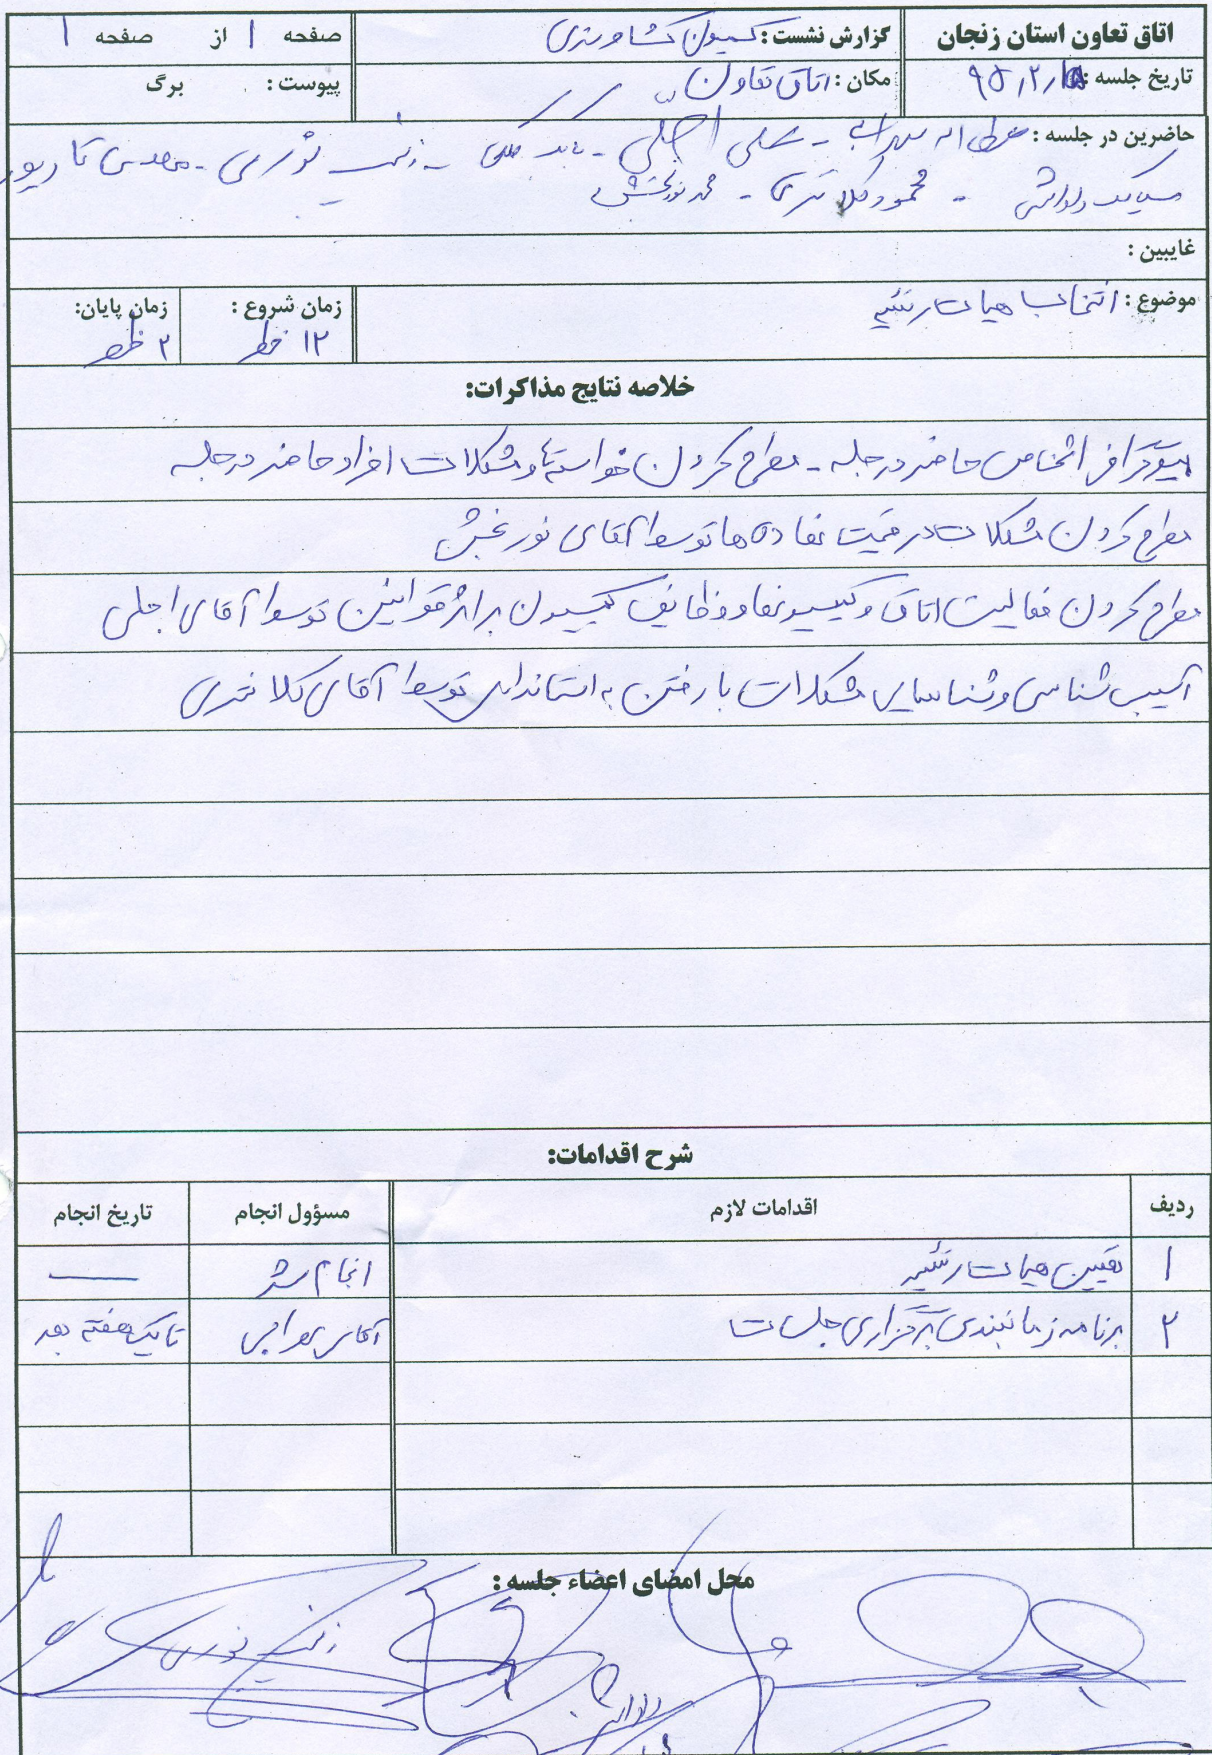 اتاق تعاون استان زنجان
گزارش نشست : کمیسیون کشاورزی
صفحه ۱ از صفحه ۱
تاریخ جلسه : ۹۵/۲/
مکان : اتاق تعاون
پیوست : برگ
حاضرین در جلسه : عطا اله سهرابی - علی اجلی - - زینب نوری - مهدی
سیامک - محمود کلانتری - محمد نوربخش
غایبین :
موضوع : انتخاب هیات رئیسه
زمان شروع : ۱۲ ظهر
زمان پایان: ۲ ظهر
خلاصه نتایج مذاکرات:
بیوگرافی اشخاص حاضر در جلسه - مطرح کردن خواسته ها و مشکلات افراد حاضر در جلسه
مطرح کردن مشکلات در قیمت نهاده ها توسط آقای نوربخش
مطرح کردن فعالیت اتاق و کمیسیونها و وظایف کمیسیون برابر قوانین توسط آقای اجلی
آسیب شناسی و شناسایی مشکلات با رفتن به استانداری توسط آقای کلانتری
شرح اقدامات:
ردیف اقدامات لازم مسؤول انجام تاریخ انجام
۱ تعیین هیات رئیسه انجام شد —
۲ برنامه زمانبندی برگزاری جلسات آقای سهرابی تا یک هفته بعد
محل امضای اعضاء جلسه :
زینب نوری